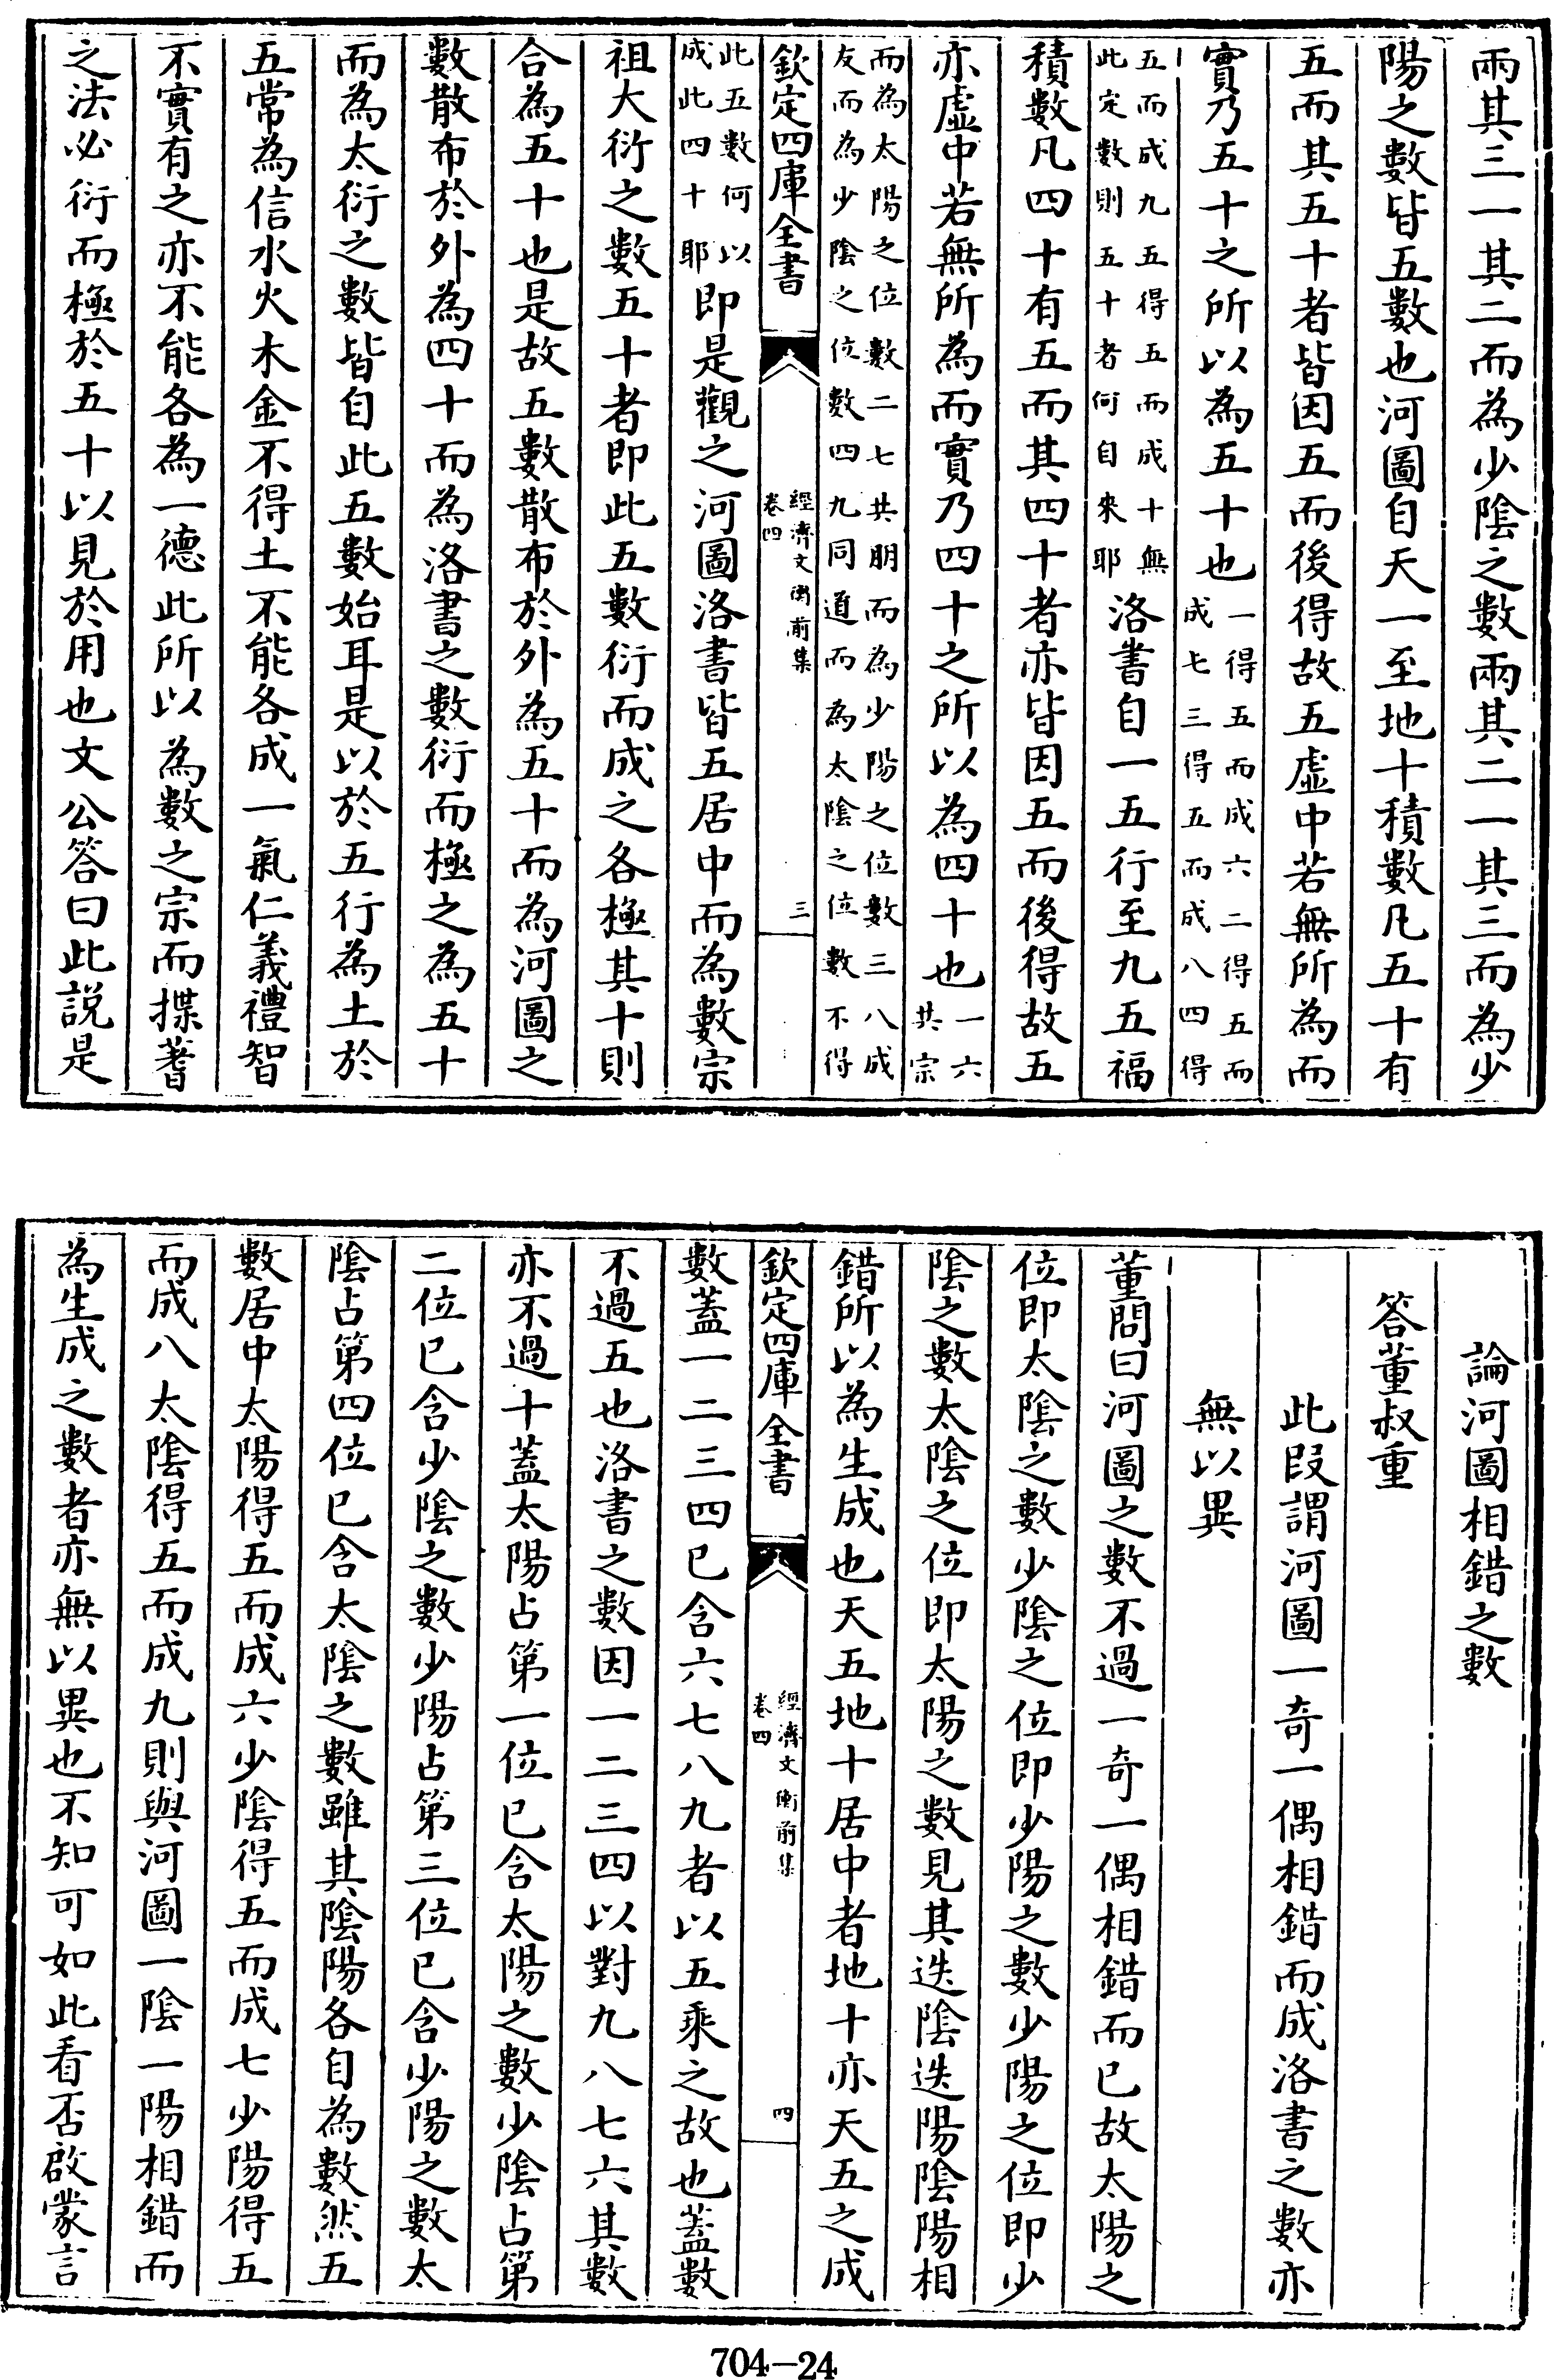 兩其三一其二而為少陰之數兩其二一其三而為少
陽之數皆五數也河圖自天一至地十積數凡五十有
五而其五十者皆因五而後得故五虛中若無所為而
實乃五十之所以為五十也一得五而成六二得五而
成七三得五而成八四得
五而成九五得五而成十無
此定數則五十者何自來耶洛書自一五行至九五福
積數凡四十有五而其四十者亦皆因五而後得故五
亦虛中若無所為而實乃四十之所以為四十也一六
共宗
而為太陽之位數二七共朋而為少陽之位數三八成
友而為少陰之位數四九同道而為太陰之位數不得
欽定四庫全書
經濟文衡前集
卷四
三
此五數何以
成此四十耶即是觀之河圖洛書皆五居中而為數宗
祖大衍之數五十者即此五數衍而成之各極其十則
合為五十也是故五數散布於外為五十而為河圖之
數散布於外為四十而為洛書之數衍而極之為五十
而為太衍之數皆自此五數始耳是以於五行為土於
五常為信水火木金不得土不能各成一氣仁義禮智
不實有之亦不能各為一德此所以為數之宗而揲蓍
之法必衍而極於五十以見於用也文公答曰此說是
論河圖相錯之數
答董叔重
此段謂河圖一奇一偶相錯而成洛書之數亦
無以異
董問曰河圖之數不過一奇一偶相錯而已故太陽之
位即太陰之數少陰之位即少陽之數少陽之位即少
陰之數太陰之位即太陽之數見其迭陰迭陽陰陽相
錯所以為生成也天五地十居中者地十亦天五之成
欽定四庫全書
經濟文衡前集
卷四
四
數蓋一二三四已含六七八九者以五乘之故也蓋數
不過五也洛書之數因一二三四以對九八七六其數
亦不過十蓋太陽占第一位已含太陽之數少陰占第
二位已含少陰之數少陽占第三位已含少陽之數太
陰占第四位已含太陰之數雖其陰陽各自為數然五
數居中太陽得五而成六少陰得五而成七少陽得五
而成八太陰得五而成九則與河圖一陰一陽相錯而
為生成之數者亦無以異也不知可如此看否啟蒙言
704-24